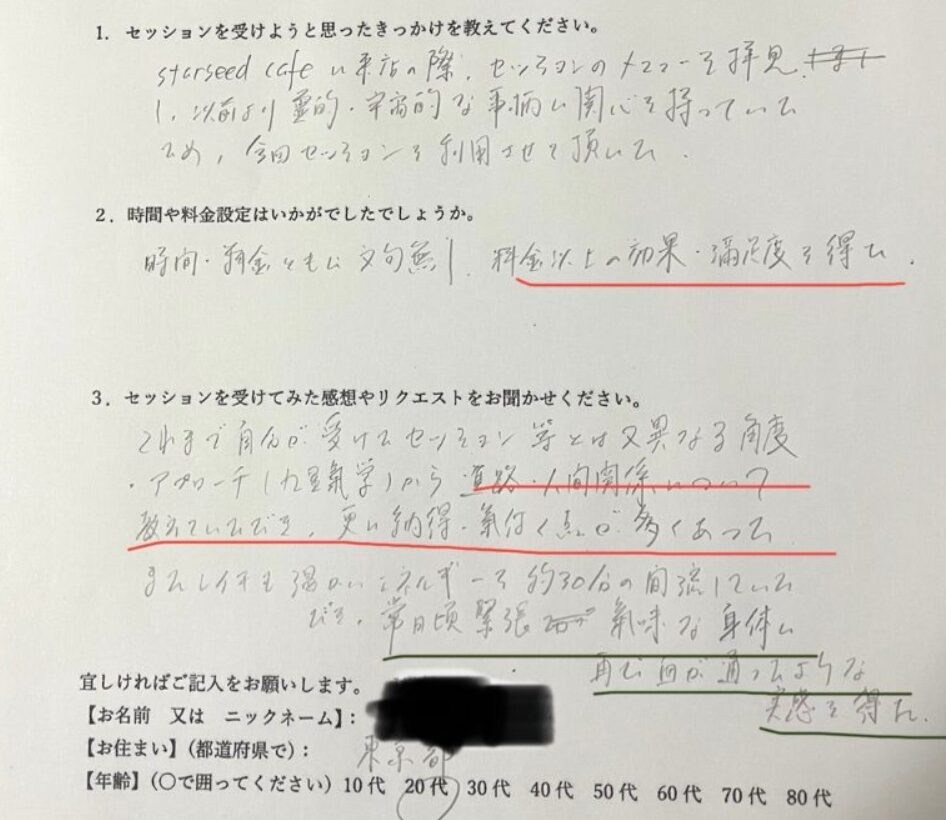 1. セッションを受けようと思ったきっかけを教えてください。
starseed cafeに来店の際、セッションのメニューを拝見
し、以前より霊的・宇宙的な事柄に関心を持っていた
ため、今回セッションを利用させて頂いた。
2. 時間や料金設定はいかがでしたでしょうか。
時間・料金ともに文句無し。料金以上の効果・満足度を得た。
3. セッションを受けてみた感想やリクエストをお聞かせください。
これまで自分が受けたセッション等とは又異なる角度
・アプローチ(九星氣学)から道路・人間関係について
教えていただき、更に納得・氣付く点が多くあった
またレイキも温かいエネルギーを約30分の間流していた
だき、常日頃緊張氣味な身体に
再び血が通ったような
実感を得た。
宜しければご記入をお願いします。
【お名前 又は ニックネーム】:
【お住まい】(都道府県で): 東京都
【年齢】(〇で囲ってください) 10代 20代 30代 40代 50代 60代 70代 80代